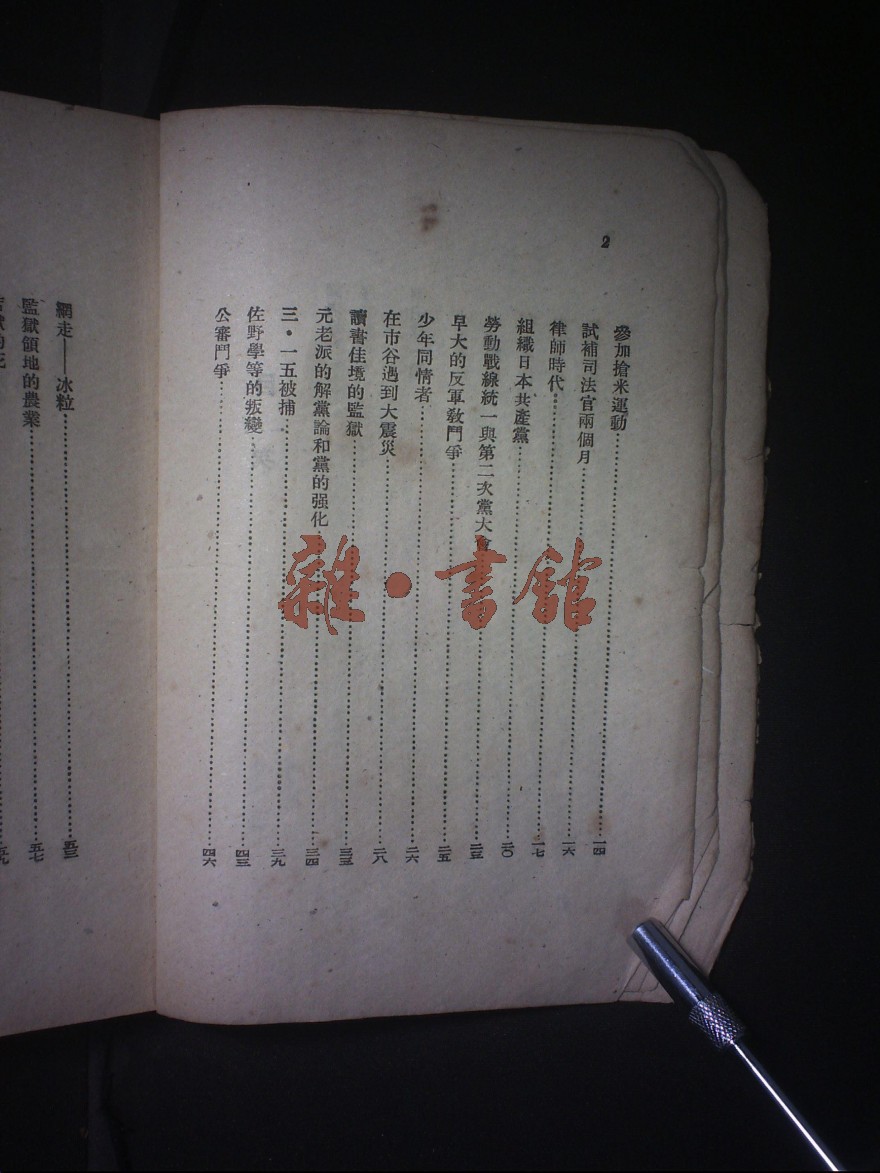 2
參加搶米運動……一四
試補司法官兩個月……一六
律師時代……一七
組織日本共產黨……二〇
勞動戰線統一與第二次黨大會……二三
早大的反軍教鬥爭……二五
少年同情者……二六
在市谷遇到大震災……二八
讀書佳境的監獄……三三
元老派的解黨論和黨的强化……三四
三・一五被捕……三九
佐野學等的叛變……四三
公審鬥爭……四六
網走——冰粒……五三
監獄領地的農業……五七
雜・書館